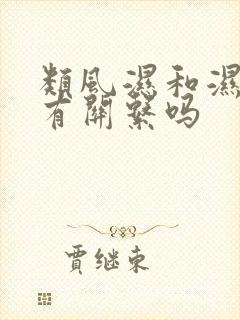 類風濕和濕
有關繫吗
賈继東